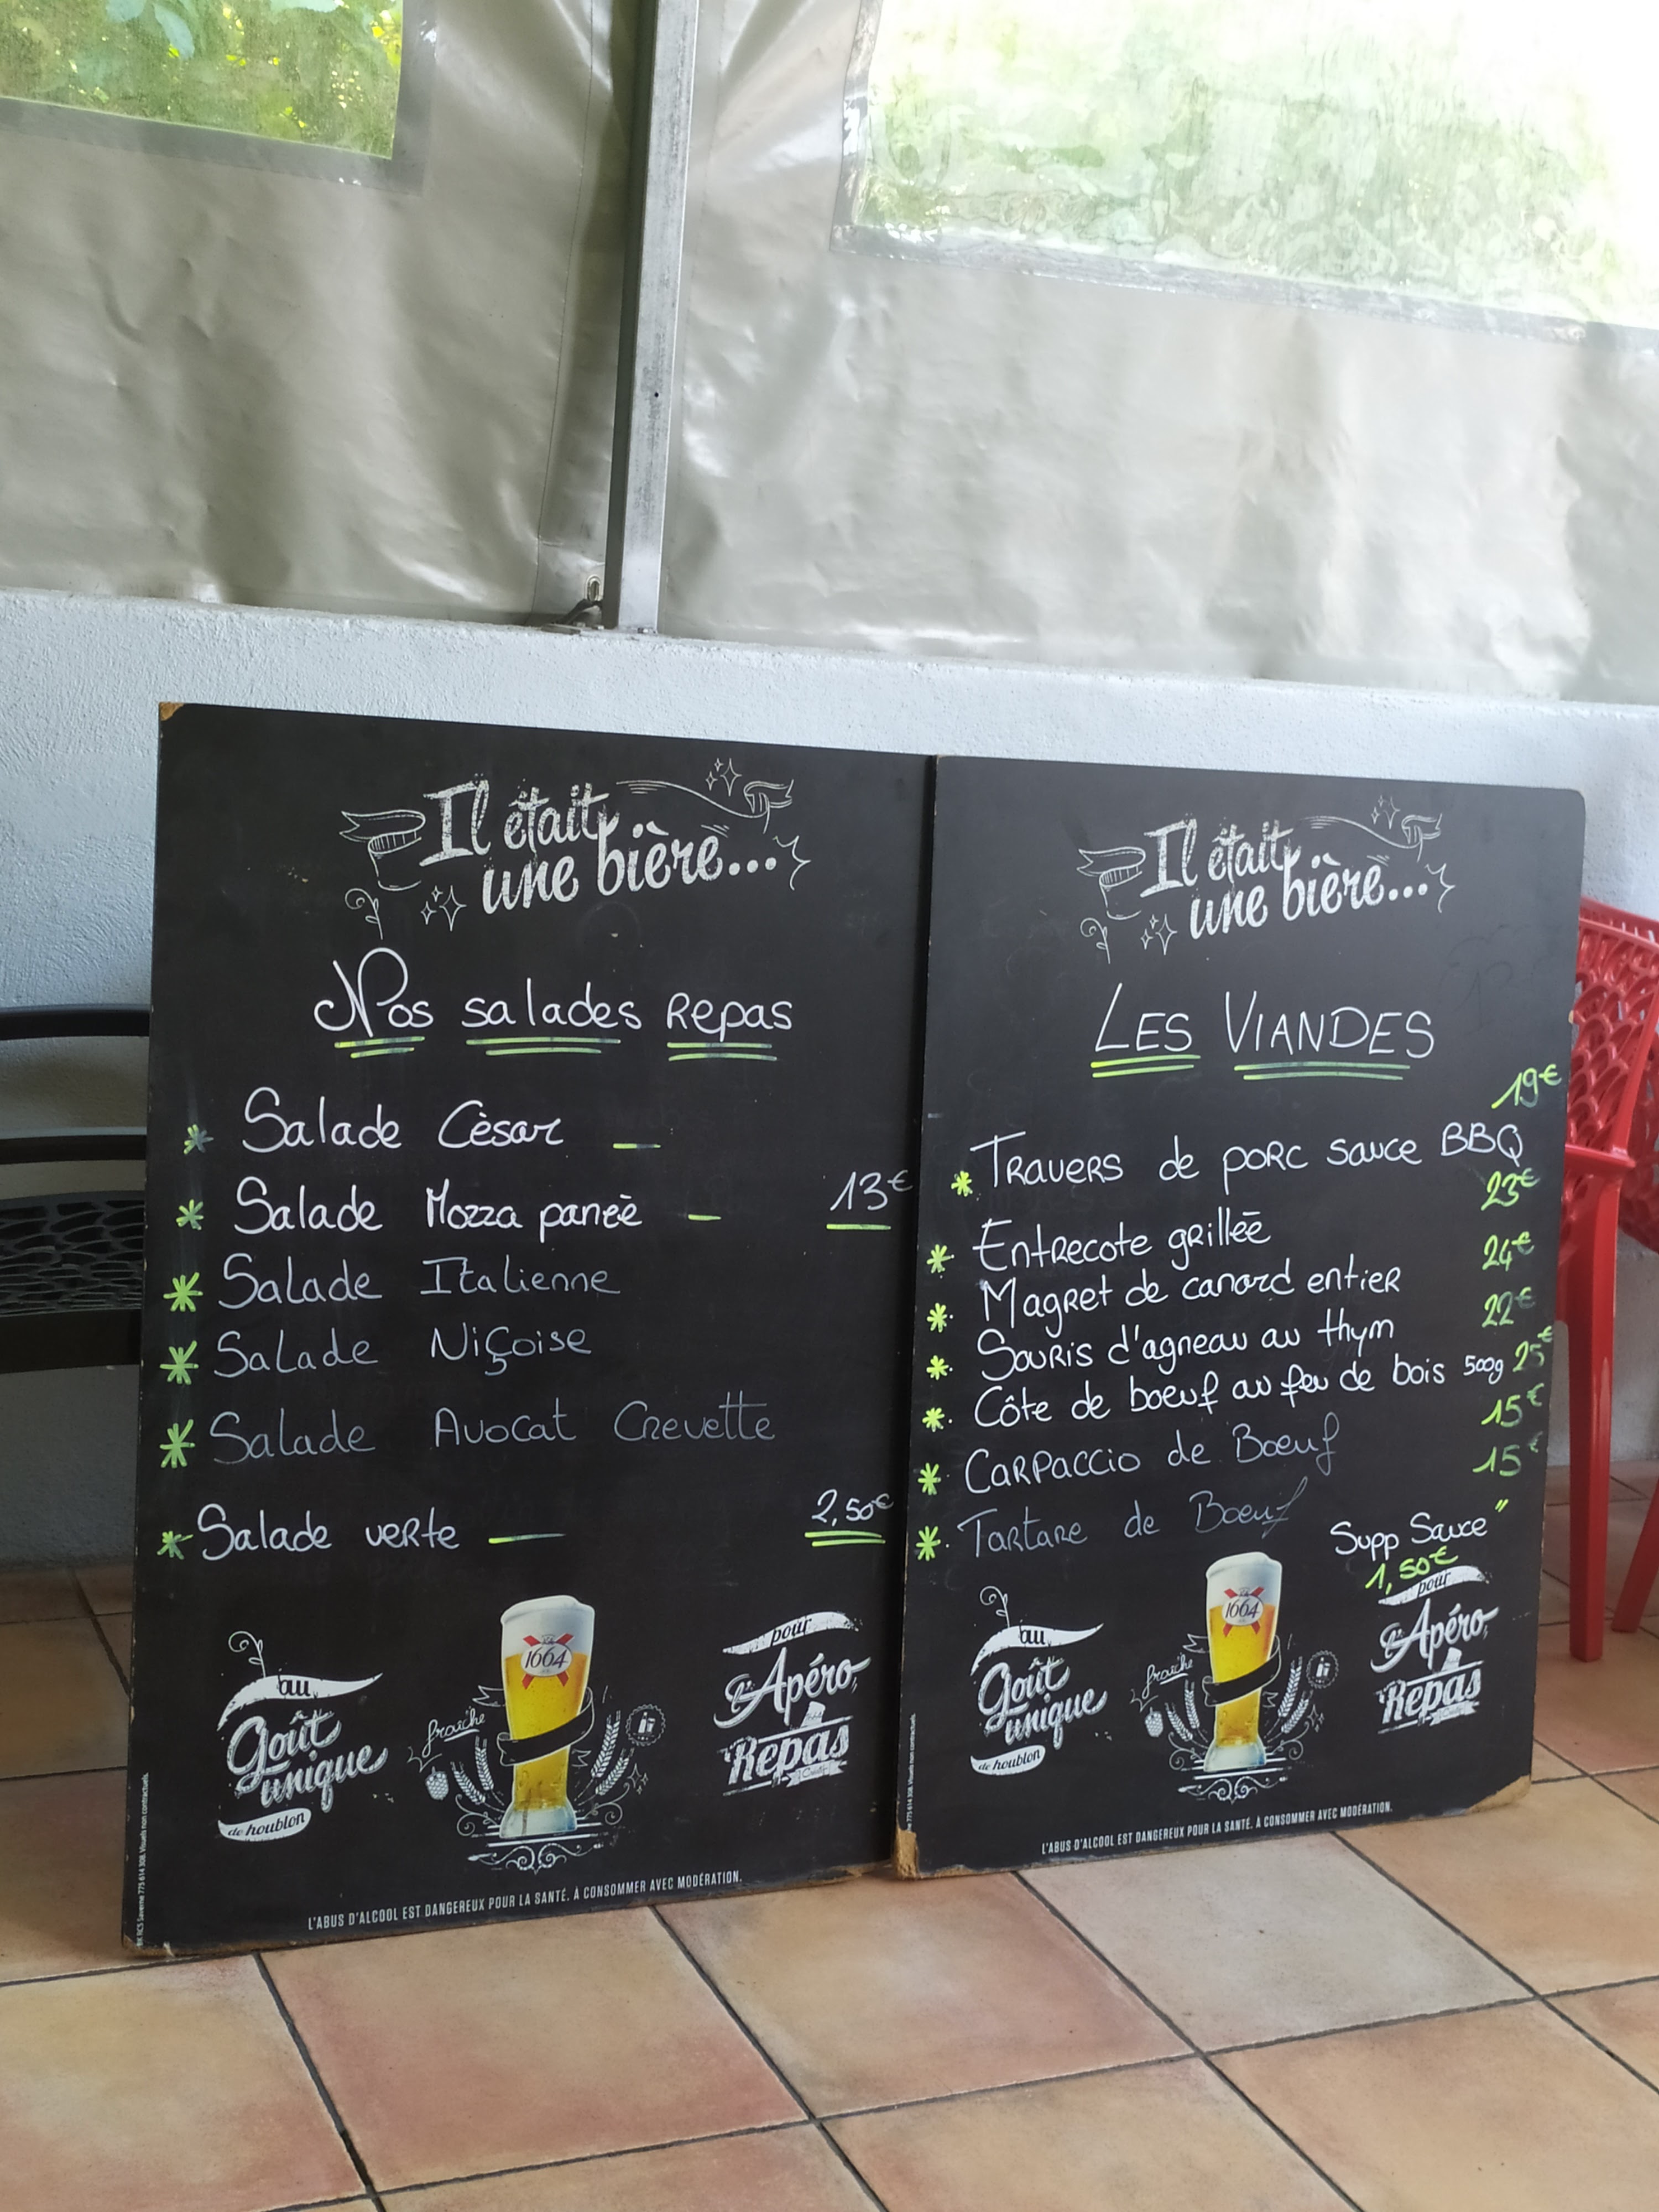 Il était
une bière...
Nos salades Repas
* Salade Cèsar —
* Salade Mozza paneè — 13€
* Salade Italienne
* Salade Niçoise
* Salade Avocat Crevette
* Salade verte — 2,50€
au
Goût
unique
de houblon
fraîche
1664
pour
l'Apéro,
Repas
L'ABUS D'ALCOOL EST DANGEREUX POUR LA SANTÉ. À CONSOMMER AVEC MODÉRATION.
Il était
une bière...
LES VIANDES
* Travers de porc sauce BBQ 19€
* Entrecote grilleē 23€
* Magret de canard entier 24€
* Souris d'agneau au thym 22€
* Côte de boeuf au feu de bois 500g 25€
* Carpaccio de Boeuf 15€
* Tartare de Boeuf 15€
Supp Sauce "
1,50€
au
Goût
unique
de houblon
fraîche
1664
pour
l'Apéro,
Repas
L'ABUS D'ALCOOL EST DANGEREUX POUR LA SANTÉ. À CONSOMMER AVEC MODÉRATION.